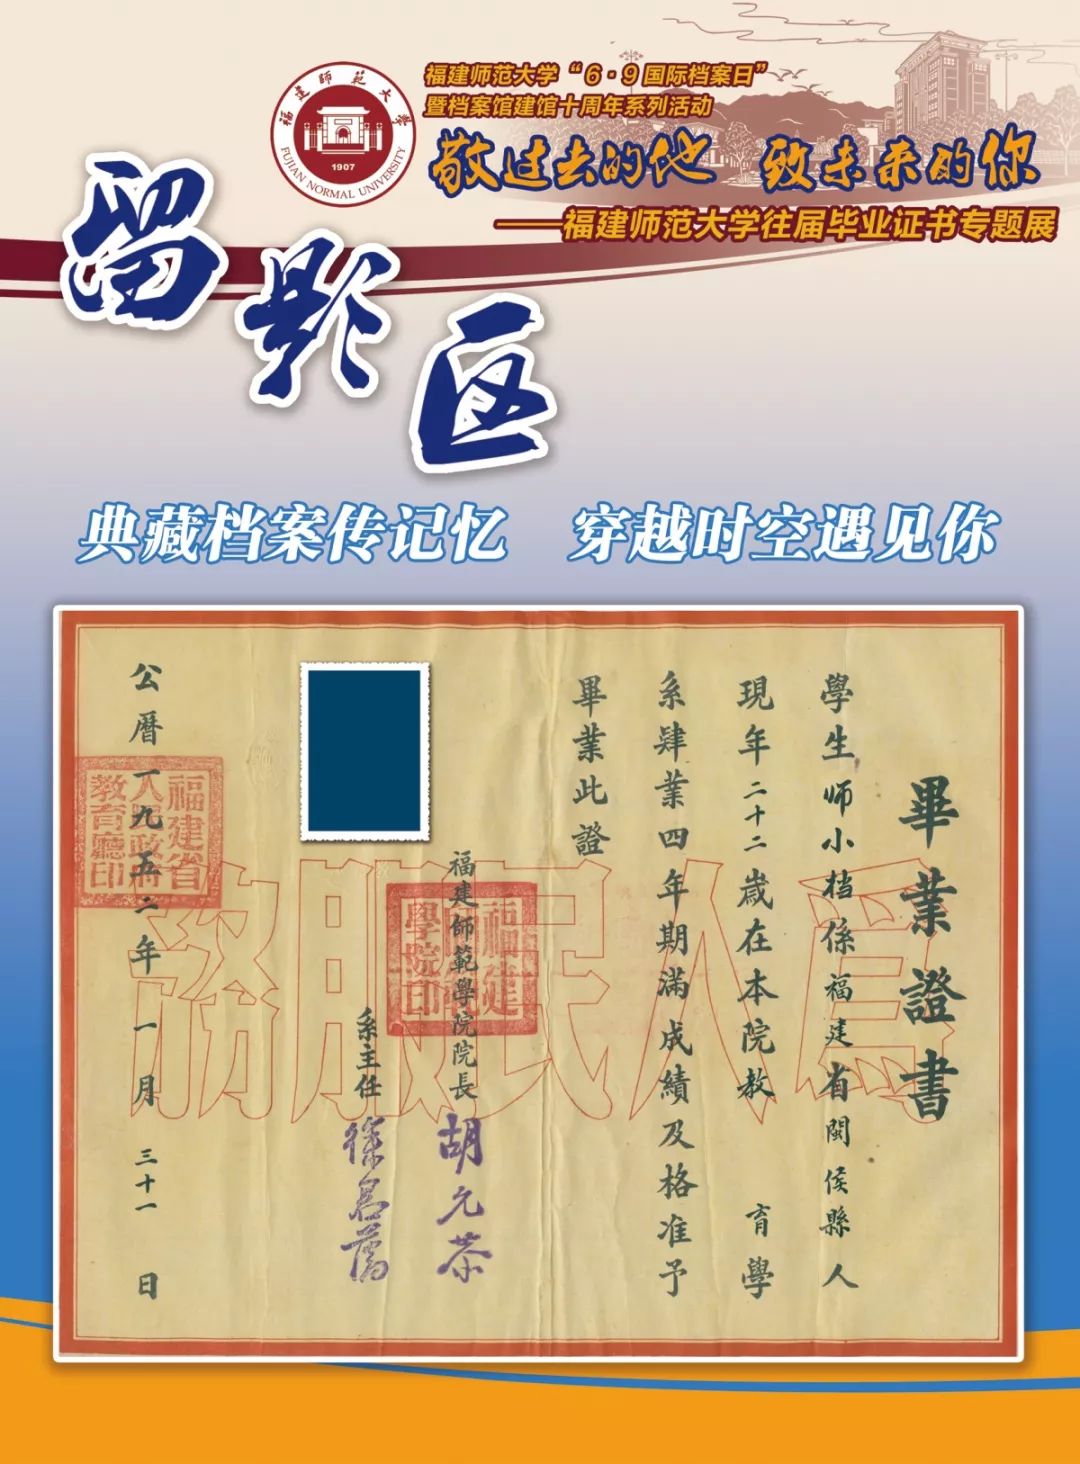 福建师范大学
FUJIAN NORMAL UNIVERSITY
1907
福建师范大学“6·9国际档案日”
暨档案馆建馆十周年系列活动
敬过去的他 致未来的你
——福建师范大学往届毕业证书专题展
留影区
典藏档案传记忆 穿越时空遇见你
畢業證書
學生师小档係福建省閩侯縣人
現年二十二歲在本院教育學
系肄業四年期滿成績及格准予
畢業此證
福建師範學院院長 胡允恭
系主任
公曆一九五二年一月三十一日
為人民服務
福建省
人民政府
教育廳印
福建
師範
學院印